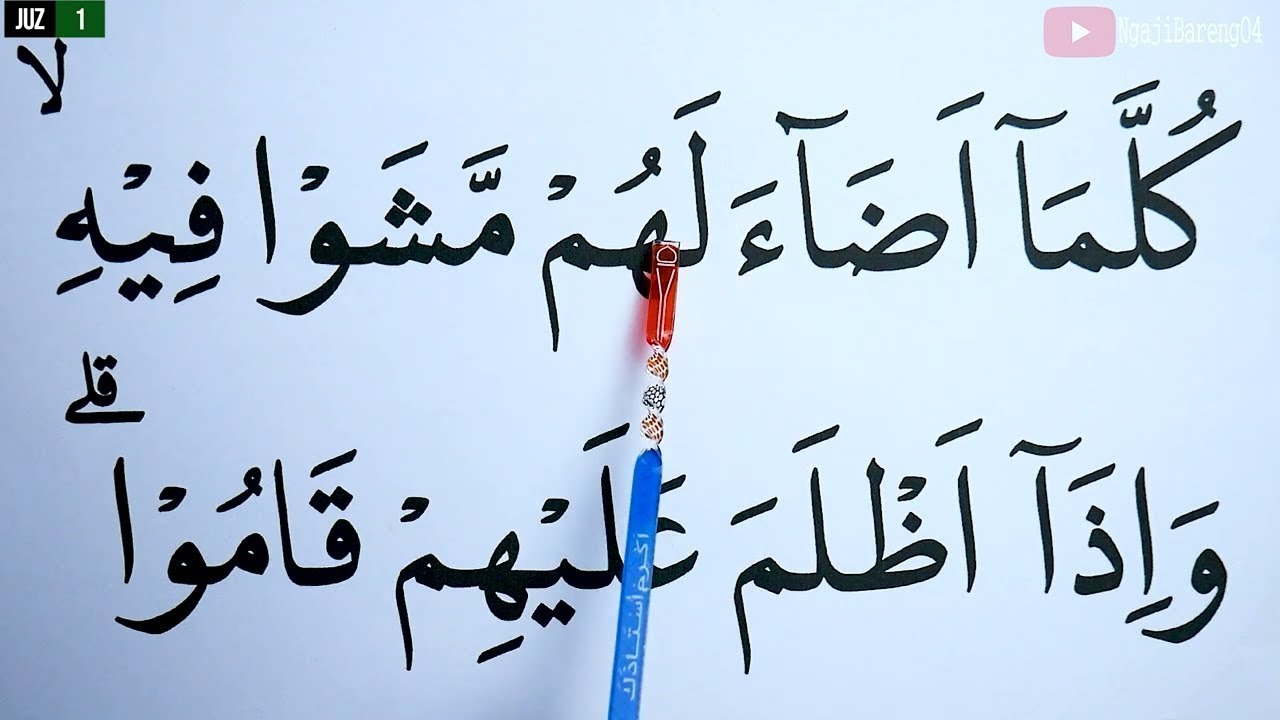 JUZ 1
NgajiBareng04
لا
كُلَّمَآ اَضَآءَ لَهُمْ مَّشَوْا فِيْهِ
قلے
وَاِذَآ اَظْلَمَ عَلَيْهِمْ قَامُوْا
اكرم استاذك